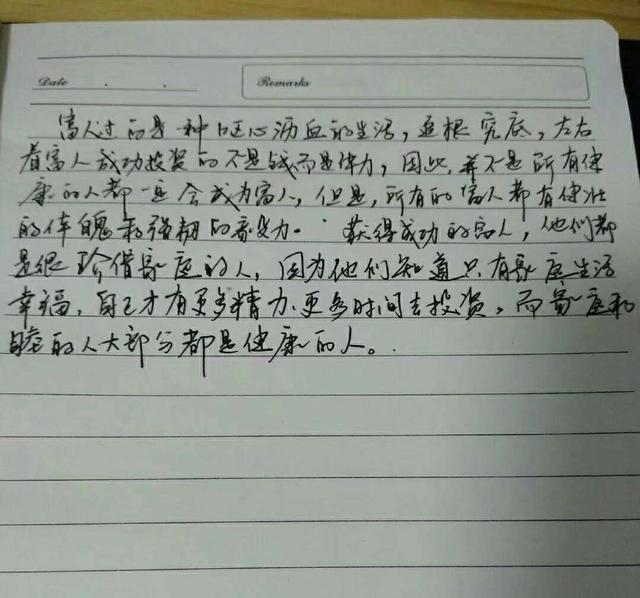 Date . .
Remarks
富人过的是一种呕心沥血的生活，追根究底，左右
着富人成功投资的不是钱而是体力，因此，并不是所有健
康的人都一定会成为富人，但是，所有的富人都有健壮
的体魄和强韧的意志力。获得成功的富人，他们都
是很珍惜家庭的人，因为他们知道只有家庭生活
幸福，自己才有更多精力、更多时间去投资。而家庭和
睦的人大部分都是健康的人。